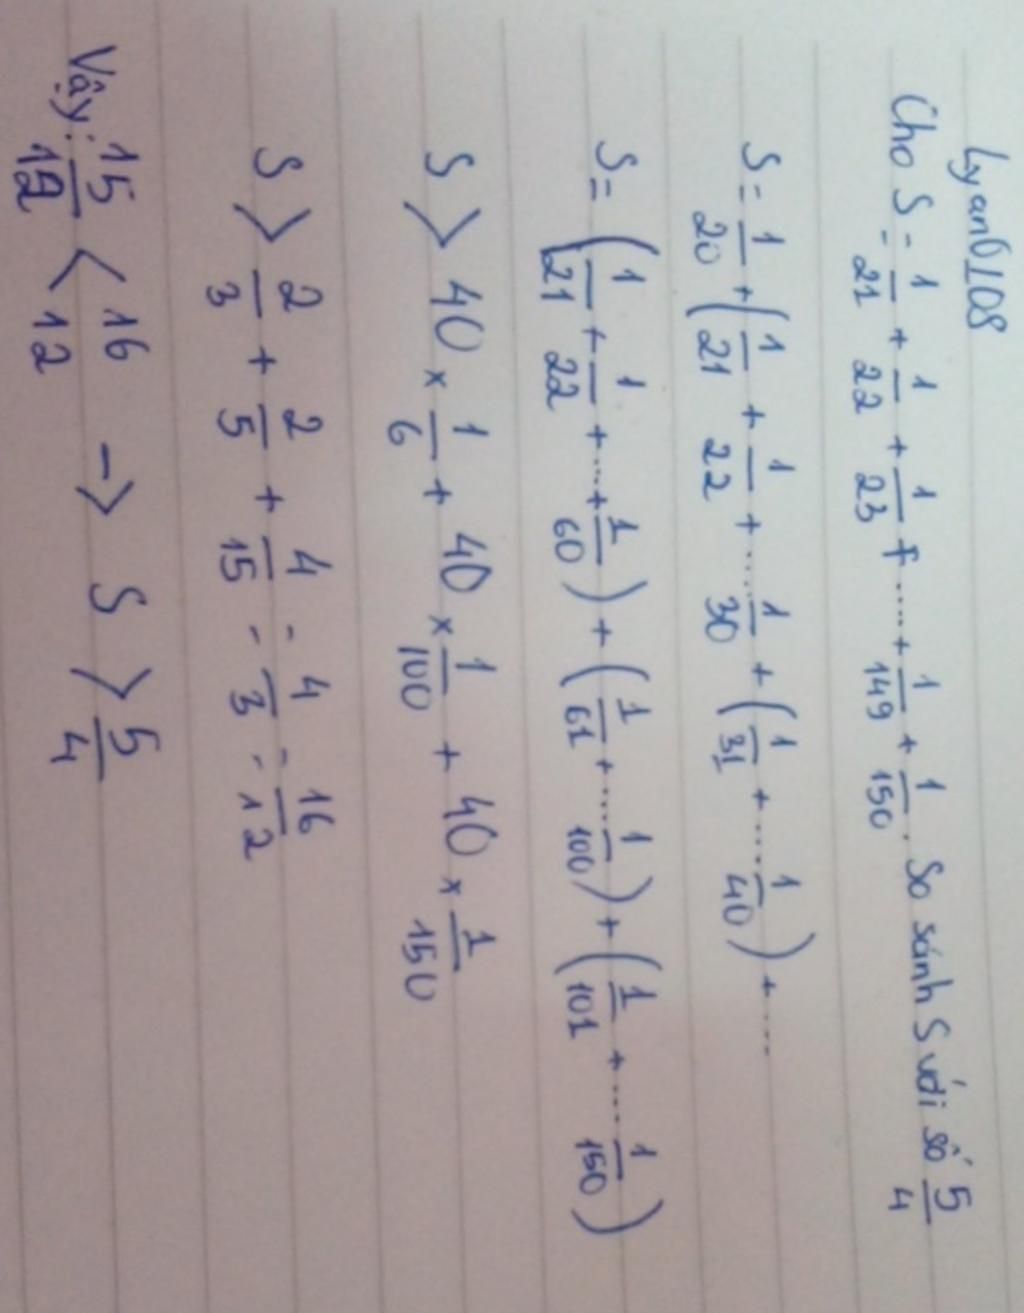 Lyan0108
Cho S = 1/21 + 1/22 + 1/23 + ..... + 1/149 + 1/150 . So sánh S với số 5/4
S = 1/20 + (1/21 + 1/22 + ..... 1/30 + (1/31 + ..... 1/40) + ....
S = (1/21 + 1/22 + .... + 1/60) + (1/61 + ..... 1/100) + (1/101 + .... 1/150)
S > 40 x 1/6 + 40 x 1/100 + 40 x 1/150
S > 2/3 + 2/5 + 4/15 - 4/3 = 16/12
Vậy: 15/12 < 16/12 -> S > 5/4